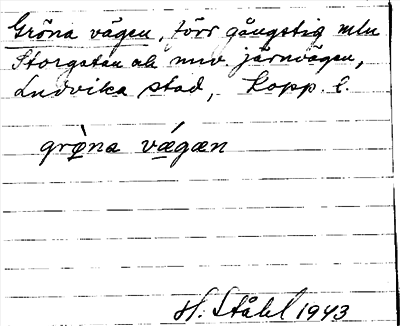 Gröna vägen, förr gångstig mln
Storgatan och nuv. järnvägen,
Ludvika stad, Kopp. l.
grø̀na vǽgæn
H. Ståhl 1943